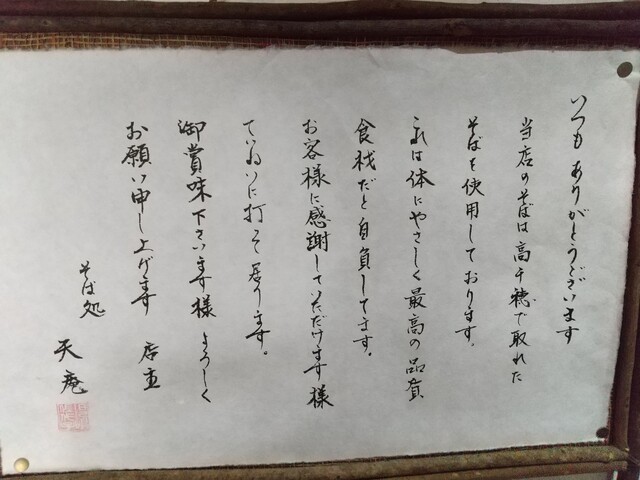 いつもありがとうございます
当店のそばは高千穂で取れた
そばを使用しております。
これは体にやさしく最高の品質
食材だと自負してます。
お客様に感謝していただけます様
ていねいに打って居ります。
御賞味下さいます様 よろしく
お願い申し上げます 店主
そば処
天庵